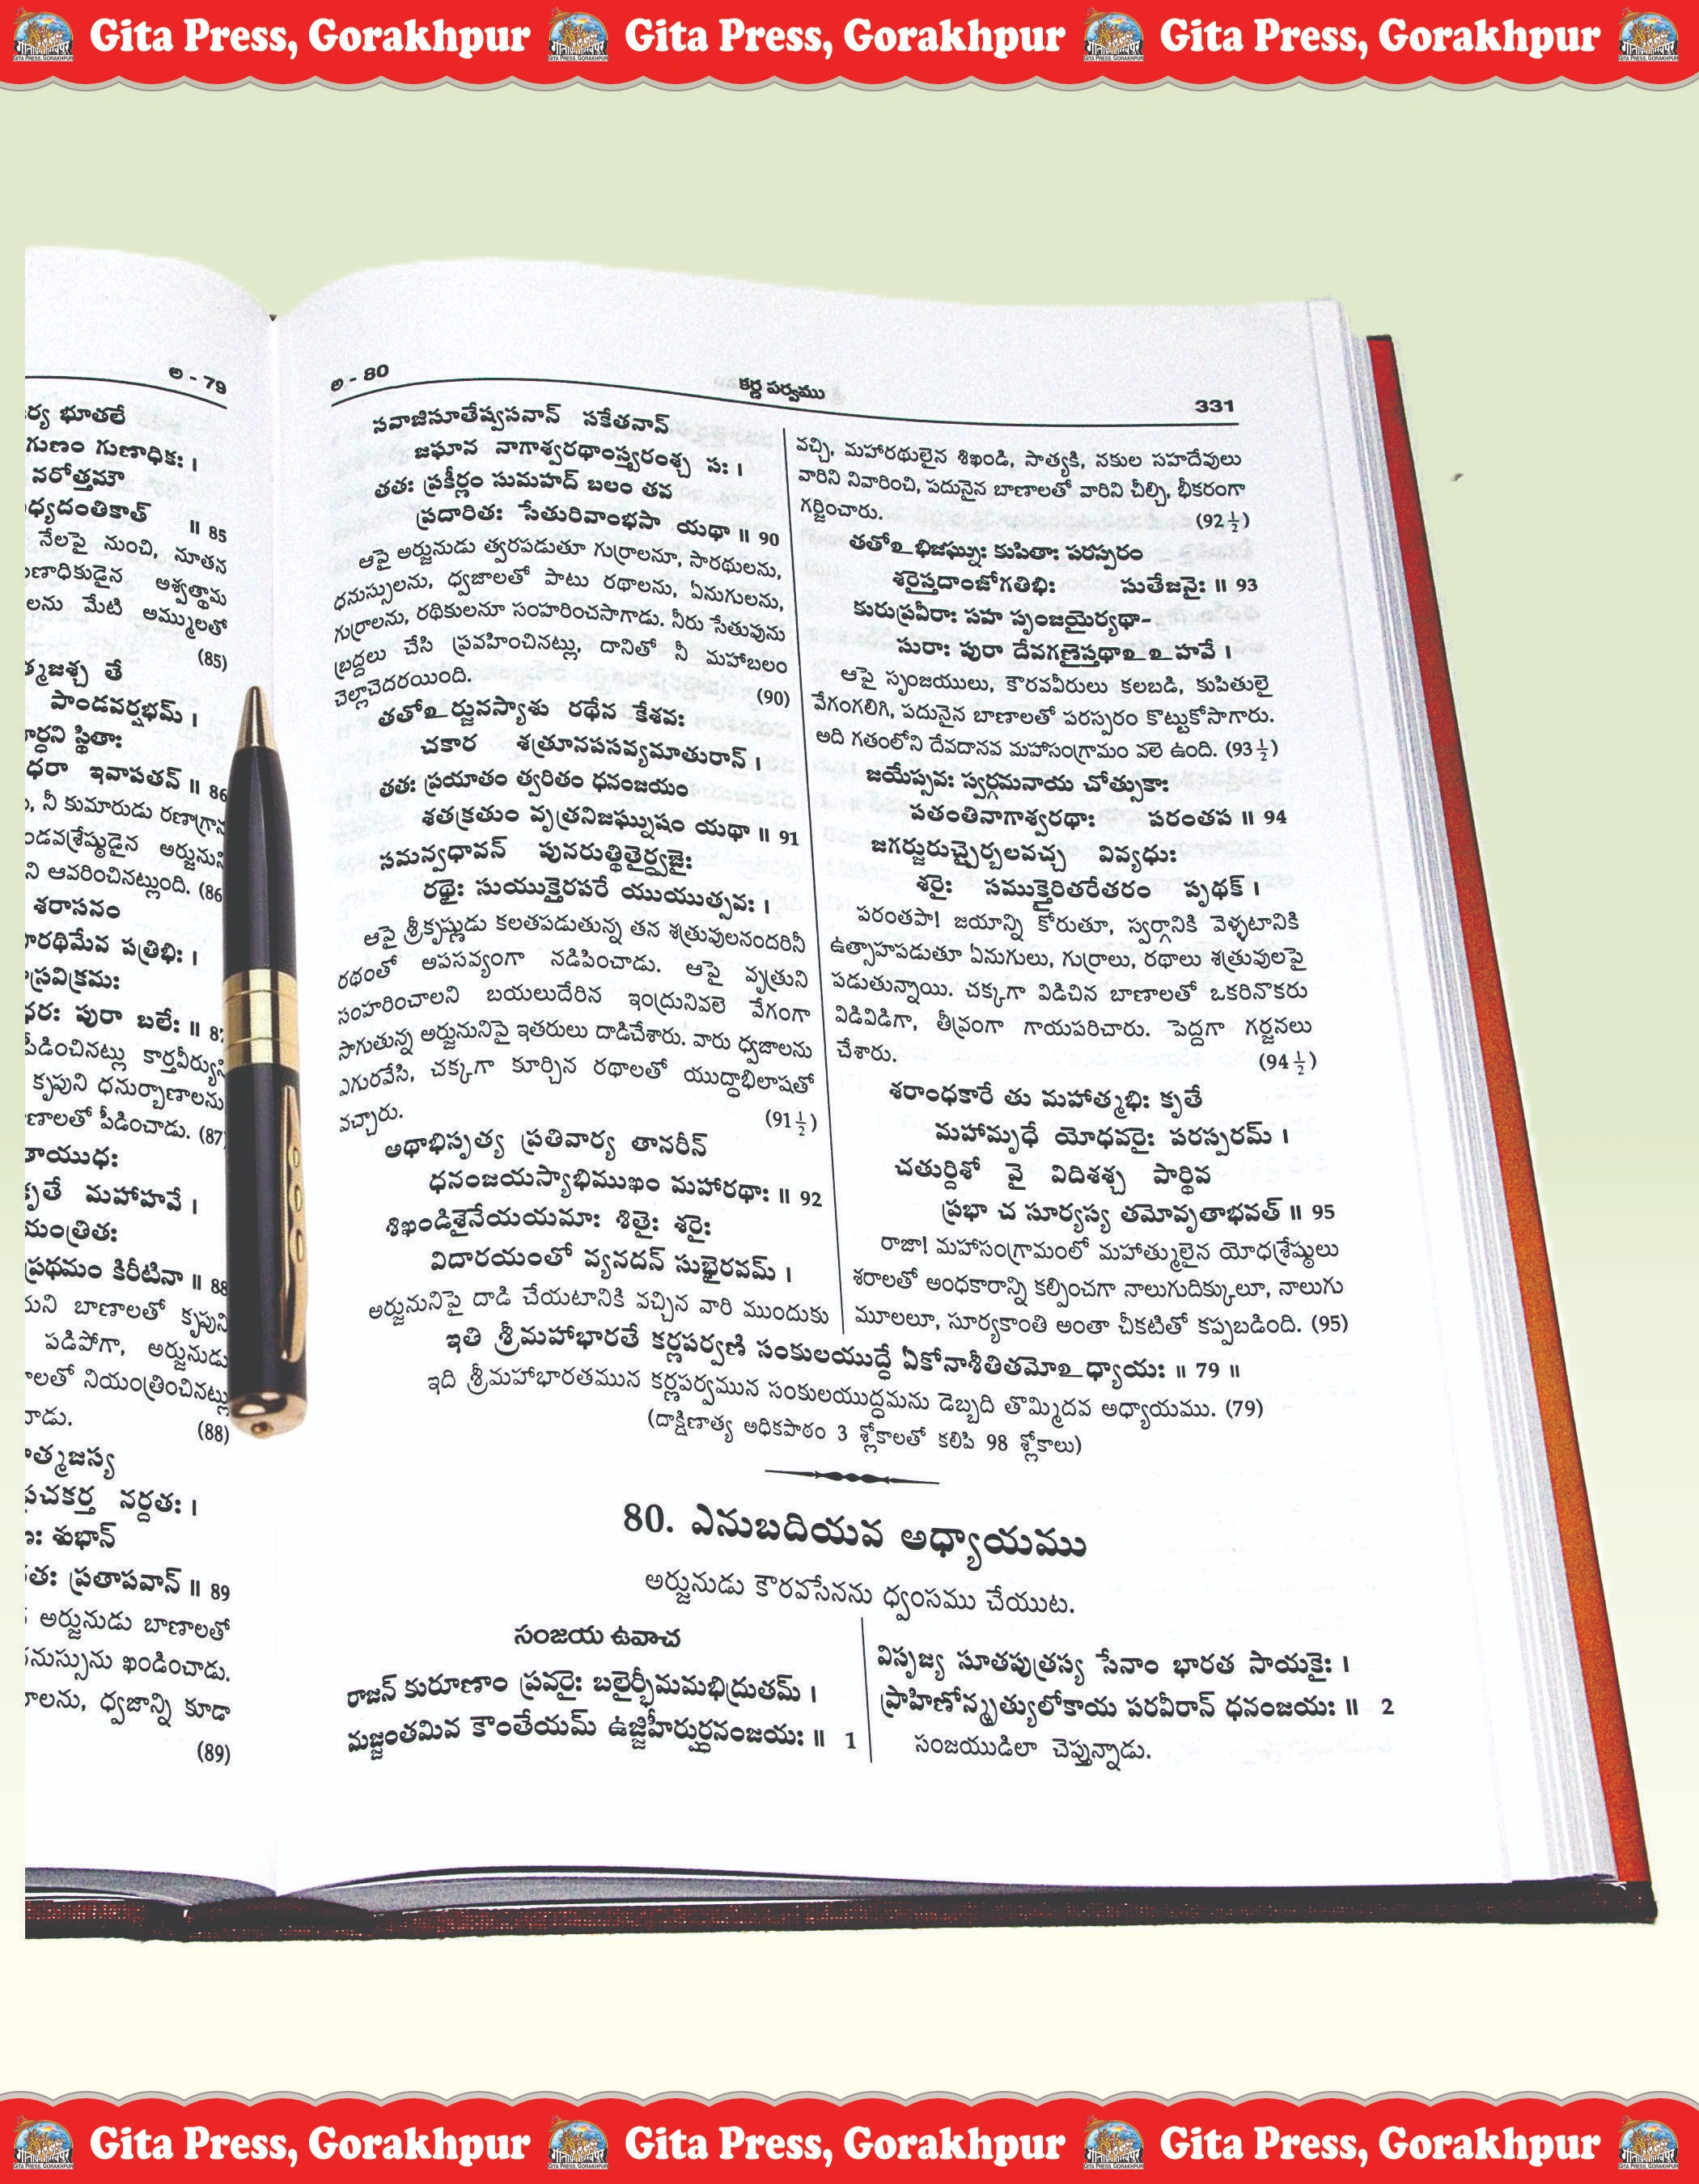 Gita Press, Gorakhpur Gita Press, Gorakhpur Gita Press, Gorakhpur
అ - 79
ర్య భూతలే
గుణం గుణాధికః ।
నరోత్తమౌ
ధ్యదంతికాత్ ॥ 85
నేలపై నుంచి, నూతన
ణాధికుడైన అశ్వత్థామ
లను మేటి అమ్ములతో
(85)
త్మజశ్చ తే
పాండవర్షభమ్ ।
ర్ధని స్థితాః
ధరా ఇవాపతన్ ॥ 86
, నీ కుమారుడు రణాగ్రాన
ండవశ్రేష్ఠుడైన అర్జునుని
ని ఆవరించినట్లుంది. (86
శరాసనం
రథిమేవ పత్రిభిః ।
స్రవిక్రమః
ధరః పురా బలేః ॥ 87
పీడించినట్లు కార్తవీర్యుని
కృపుని ధనుర్బాణాలను
ణాలతో పీడించాడు. (87)
తాయుధః
కృతే మహాహవే ।
యంత్రితః
ప్రథమం కిరీటినా ॥ 88
ముని బాణాలతో కృపుని
పడిపోగా, అర్జునుడు
లతో నియంత్రించినట్లు
డు. (88)
త్మజస్య
ప్రచకర్త నర్దతః ।
శుభాన్
తః ప్రతాపవాన్ ॥ 89
అర్జునుడు బాణాలతో
నుస్సును ఖండించాడు.
లను, ధ్వజాన్ని కూడా
(89)
అ - 80 కర్ణ పర్వము 331
సవాజిసూతేష్వసనాన్ సకేతనాన్
జఘాన నాగాశ్వరథాంస్త్వరంశ్చ సః ।
తతః ప్రకీర్ణం సుమహద్ బలం తవ
ప్రదారితః సేతురివాంభసా యథా ॥ 90
ఆపై అర్జునుడు త్వరపడుతూ గుర్రాలనూ, సారథులను,
ధనుస్సులను, ధ్వజాలతో పాటు రథాలను, ఏనుగులను,
గుర్రాలను, రథికులనూ సంహరించసాగాడు. నీరు సేతువును
బ్రద్దలు చేసి ప్రవహించినట్లు, దానితో నీ మహాబలం
చెల్లాచెదరయింది. (90)
తతోఽర్జునస్యాశు రథేన కేశవః
చకార శత్రూనపసవ్యమాతురాన్ ।
తతః ప్రయాతం త్వరితం ధనంజయం
శతక్రతుం వృత్రనిజఘ్నుషం యథా ॥ 91
సమన్వధావన్ పునరుత్థితైర్ధ్వజైః
రథైః సుయుక్తైరపరే యుయుత్సవః ।
ఆపై శ్రీకృష్ణుడు కలతపడుతున్న తన శత్రువులనందరినీ
రథంతో అపసవ్యంగా నడిపించాడు. ఆపై వృత్రుని
సంహరించాలని బయలుదేరిన ఇంద్రునివలె వేగంగా
సాగుతున్న అర్జునునిపై ఇతరులు దాడిచేశారు. వారు ధ్వజాలను
ఎగురవేసి, చక్కగా కూర్చిన రథాలతో యుద్ధాభిలాషతో
వచ్చారు. (91½)
అథాభిసృత్య ప్రతివార్య తానరీన్
ధనంజయస్యాభిముఖం మహారథాః ॥ 92
శిఖండిశైనేయయమాః శితైః శరైః
విదారయంతో వ్యనదన్ సుభైరవమ్ ।
అర్జునునిపై దాడి చేయటానికి వచ్చిన వారి ముందుకు
వచ్చి, మహారథులైన శిఖండి, సాత్యకి, నకుల సహదేవులు
వారిని నివారించి, పదునైన బాణాలతో వారిని చీల్చి, భీకరంగా
గర్జించారు. (92½)
తతోఽభిజఘ్నుః కుపితాః పరస్పరం
శరైస్తదాంజోగతిభిః సుతేజనైః ॥ 93
కురుప్రవీరాః సహ సృంజయైర్యథా-
సురాః పురా దేవగణైస్తథాఽఽహవే ।
ఆపై సృంజయులు, కౌరవవీరులు కలబడి, కుపితులై
వేగంగలిగి, పదునైన బాణాలతో పరస్పరం కొట్టుకోసాగారు.
అది గతంలోని దేవదానవ మహాసంగ్రామం వలె ఉంది. (93½)
జయేప్సవః స్వర్గమనాయ చోత్సుకాః
పతంతినాగాశ్వరథాః పరంతప ॥ 94
జగర్జురుచ్చైర్బలవచ్చ వివ్యధుః
శరైః సముక్తైరితరేతరం పృథక్ ।
పరంతపా! జయాన్ని కోరుతూ, స్వర్గానికి వెళ్ళటానికి
ఉత్సాహపడుతూ ఏనుగులు, గుర్రాలు, రథాలు శత్రువులపై
పడుతున్నాయి. చక్కగా విడిచిన బాణాలతో ఒకరినొకరు
విడివిడిగా, తీవ్రంగా గాయపరిచారు. పెద్దగా గర్జనలు
చేశారు. (94½)
శరాంధకారే తు మహాత్మభిః కృతే
మహామృధే యోధవరైః పరస్పరమ్ ।
చతుర్దిశో వై విదిశశ్చ పార్థివ
ప్రభా చ సూర్యస్య తమోవృతాభవత్ ॥ 95
రాజా! మహాసంగ్రామంలో మహాత్ములైన యోధశ్రేష్ఠులు
శరాలతో అంధకారాన్ని కల్పించగా నాలుగుదిక్కులూ, నాలుగు
మూలలూ, సూర్యకాంతి అంతా చీకటితో కప్పబడింది. (95)
ఇతి శ్రీమహాభారతే కర్ణపర్వణి సంకులయుద్ధే ఏకోనాశీతితమోఽధ్యాయః ॥ 79 ॥
ఇది శ్రీమహాభారతమున కర్ణపర్వమున సంకులయుద్ధమను డెబ్బది తొమ్మిదవ అధ్యాయము. (79)
(దాక్షిణాత్య అధికపాఠం 3 శ్లోకాలతో కలిపి 98 శ్లోకాలు)
80. ఎనుబదియవ అధ్యాయము
అర్జునుడు కౌరవసేనను ధ్వంసము చేయుట.
సంజయ ఉవాచ
రాజన్ కురూణాం ప్రవరైః బలైర్భీమమభిద్రుతమ్ ।
మజ్జంతమివ కౌంతేయమ్ ఉజ్జిహీర్షుర్ధనంజయః ॥ 1
విసృజ్య సూతపుత్రస్య సేనాం భారత సాయకైః ।
ప్రాహిణోన్మృత్యులోకాయ పరవీరాన్ ధనంజయః ॥ 2
సంజయుడిలా చెప్తున్నాడు.
Gita Press, Gorakhpur Gita Press, Gorakhpur Gita Press, Gorakhpur